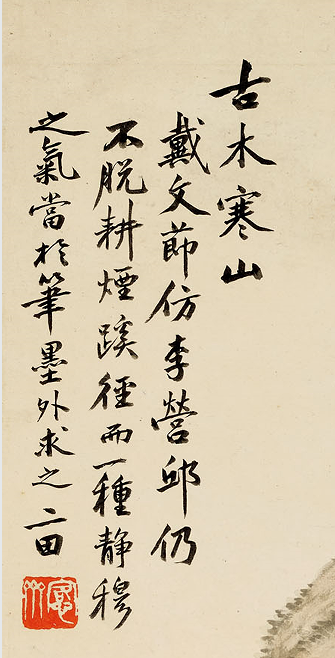 古木寒山
戴文節仿李營邱仍
不脫耕煙蹊徑而一種静穆
之氣當於筆墨外求之二田